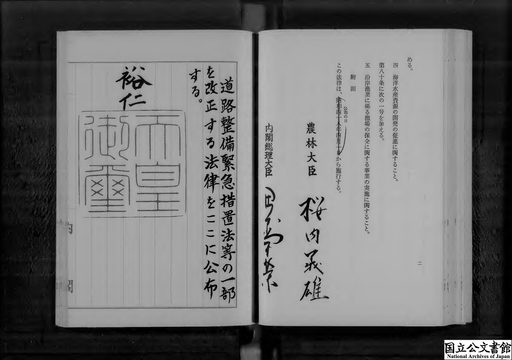 める。
四 海洋水産資源の開発の促進に関すること。
第八十条に次の一号を加える。
五 沿岸漁業に係る漁場の保全に関する事業の実施に関すること。
附則
この法律は、
から施行する。
農林大臣
桜内義雄
内閣総理大臣
田中角榮
二
道路整備緊急措置法等の一部
を改正する法律をここに公布
する。
裕仁
天皇
御璽
内閣
国立公文書館
National Archives of Japan